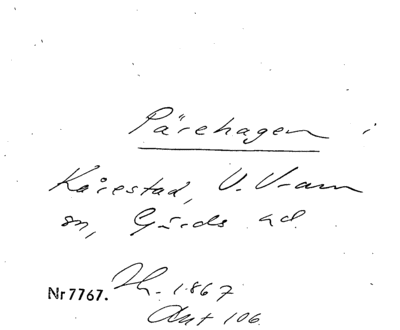 Pärehagen i
Kårestad, V. Vram
sn, Gärds hd.
Nr 7767. Th. 1867
Ant 106